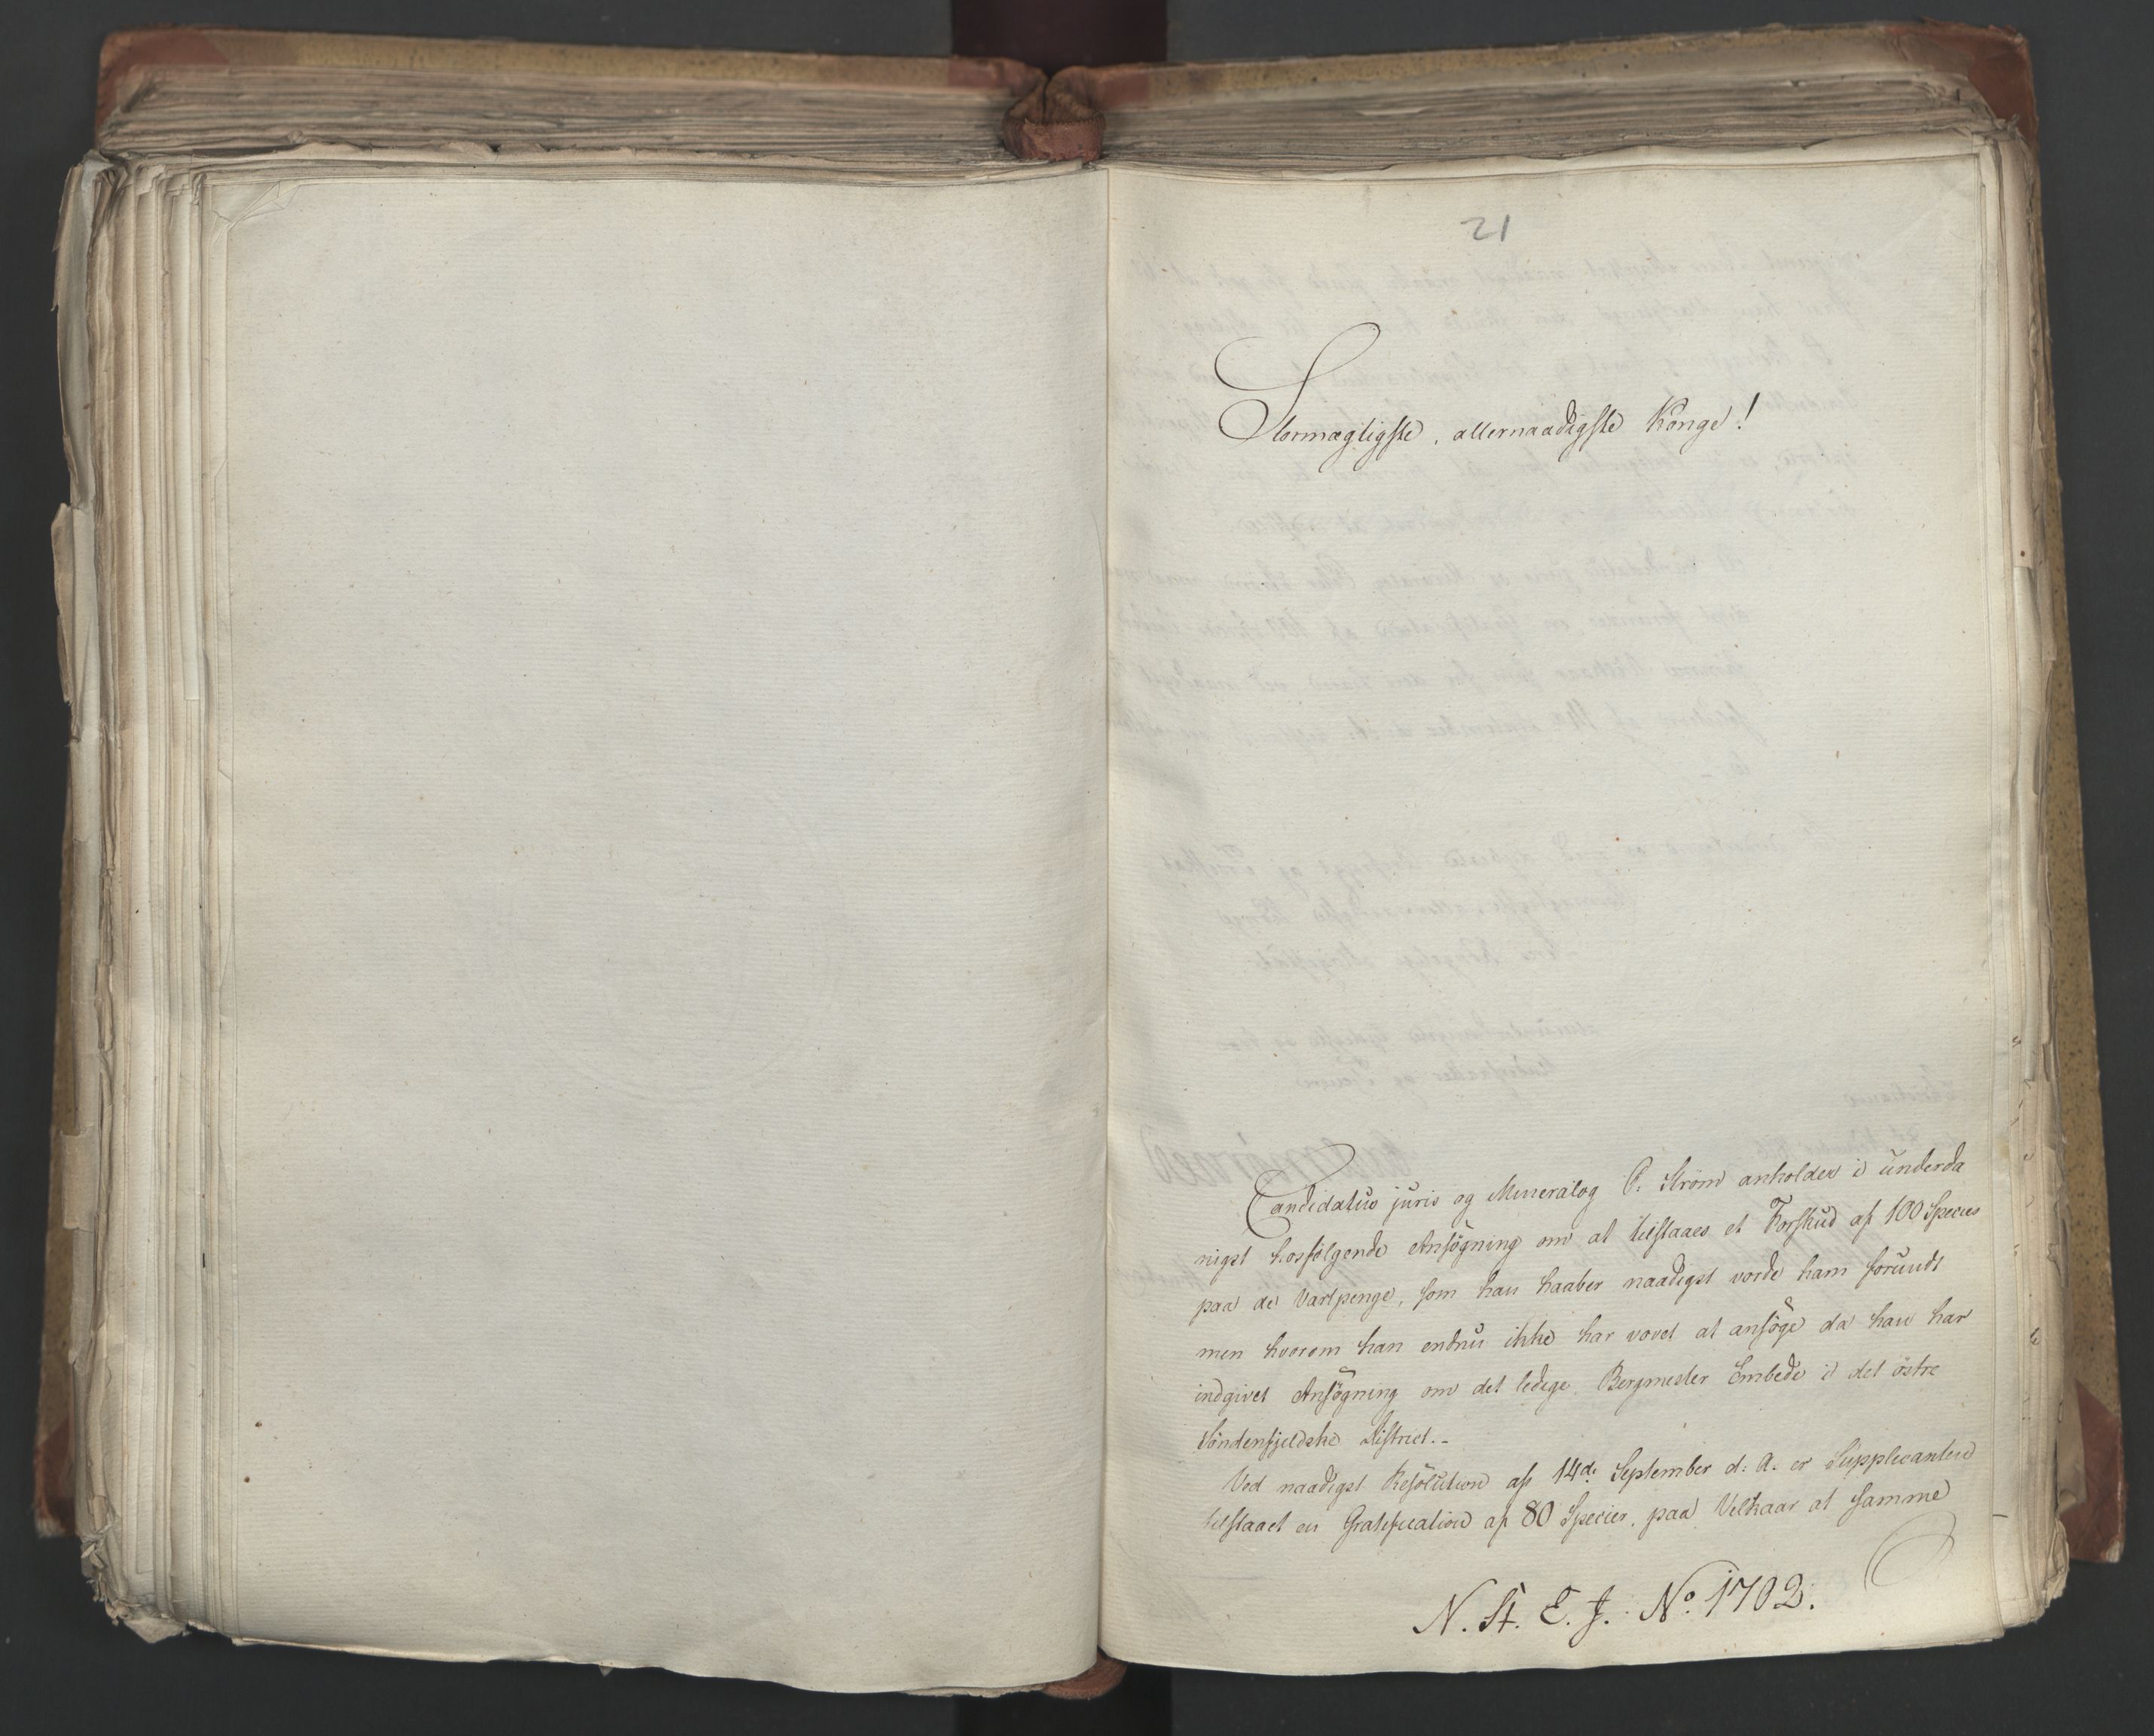 21
Stormægtigste, allernaadigste Konge!
Candidatus juris og Mineralog P. Strøm anholder i underda
nigst hosfølgende Ansøgning om at tilstaaes et Forskud af 100 Species
paa de Vartpenge, som han haaber naadigst vorde ham forundt
men hvorom han endnu ikke har vovet at ansøge da han har
indgivet Ansøgning om det ledige Bergmester Embede i det östre
Söndenfjeldske District.-
Ved naadigst Resolution af 14de September d: A. er Supplicanten
tilstaaet en Gratification af 80 Species, paa Velkaar at samme
N. St. E. J. No. 1702.